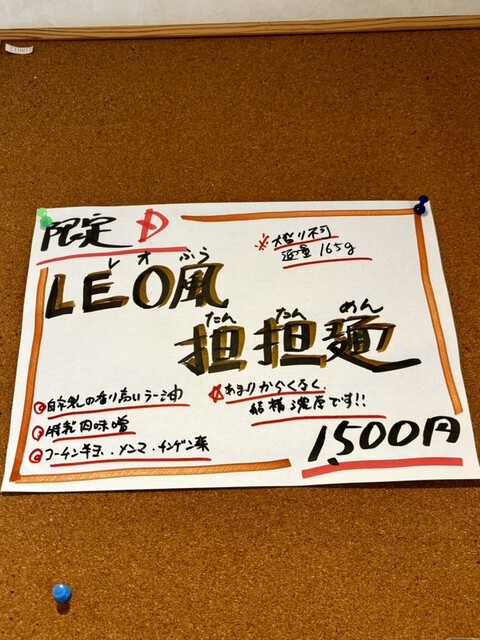 限定 D
※大盛り不可
麺量165g
レオ ふう
LEO風
たん たん めん
担担麺
自家製の香り高いラー油
肉味噌
コーチン半玉、メンマ、チンゲン菜
あまりからくなく、
結構濃厚です!!
1,500円